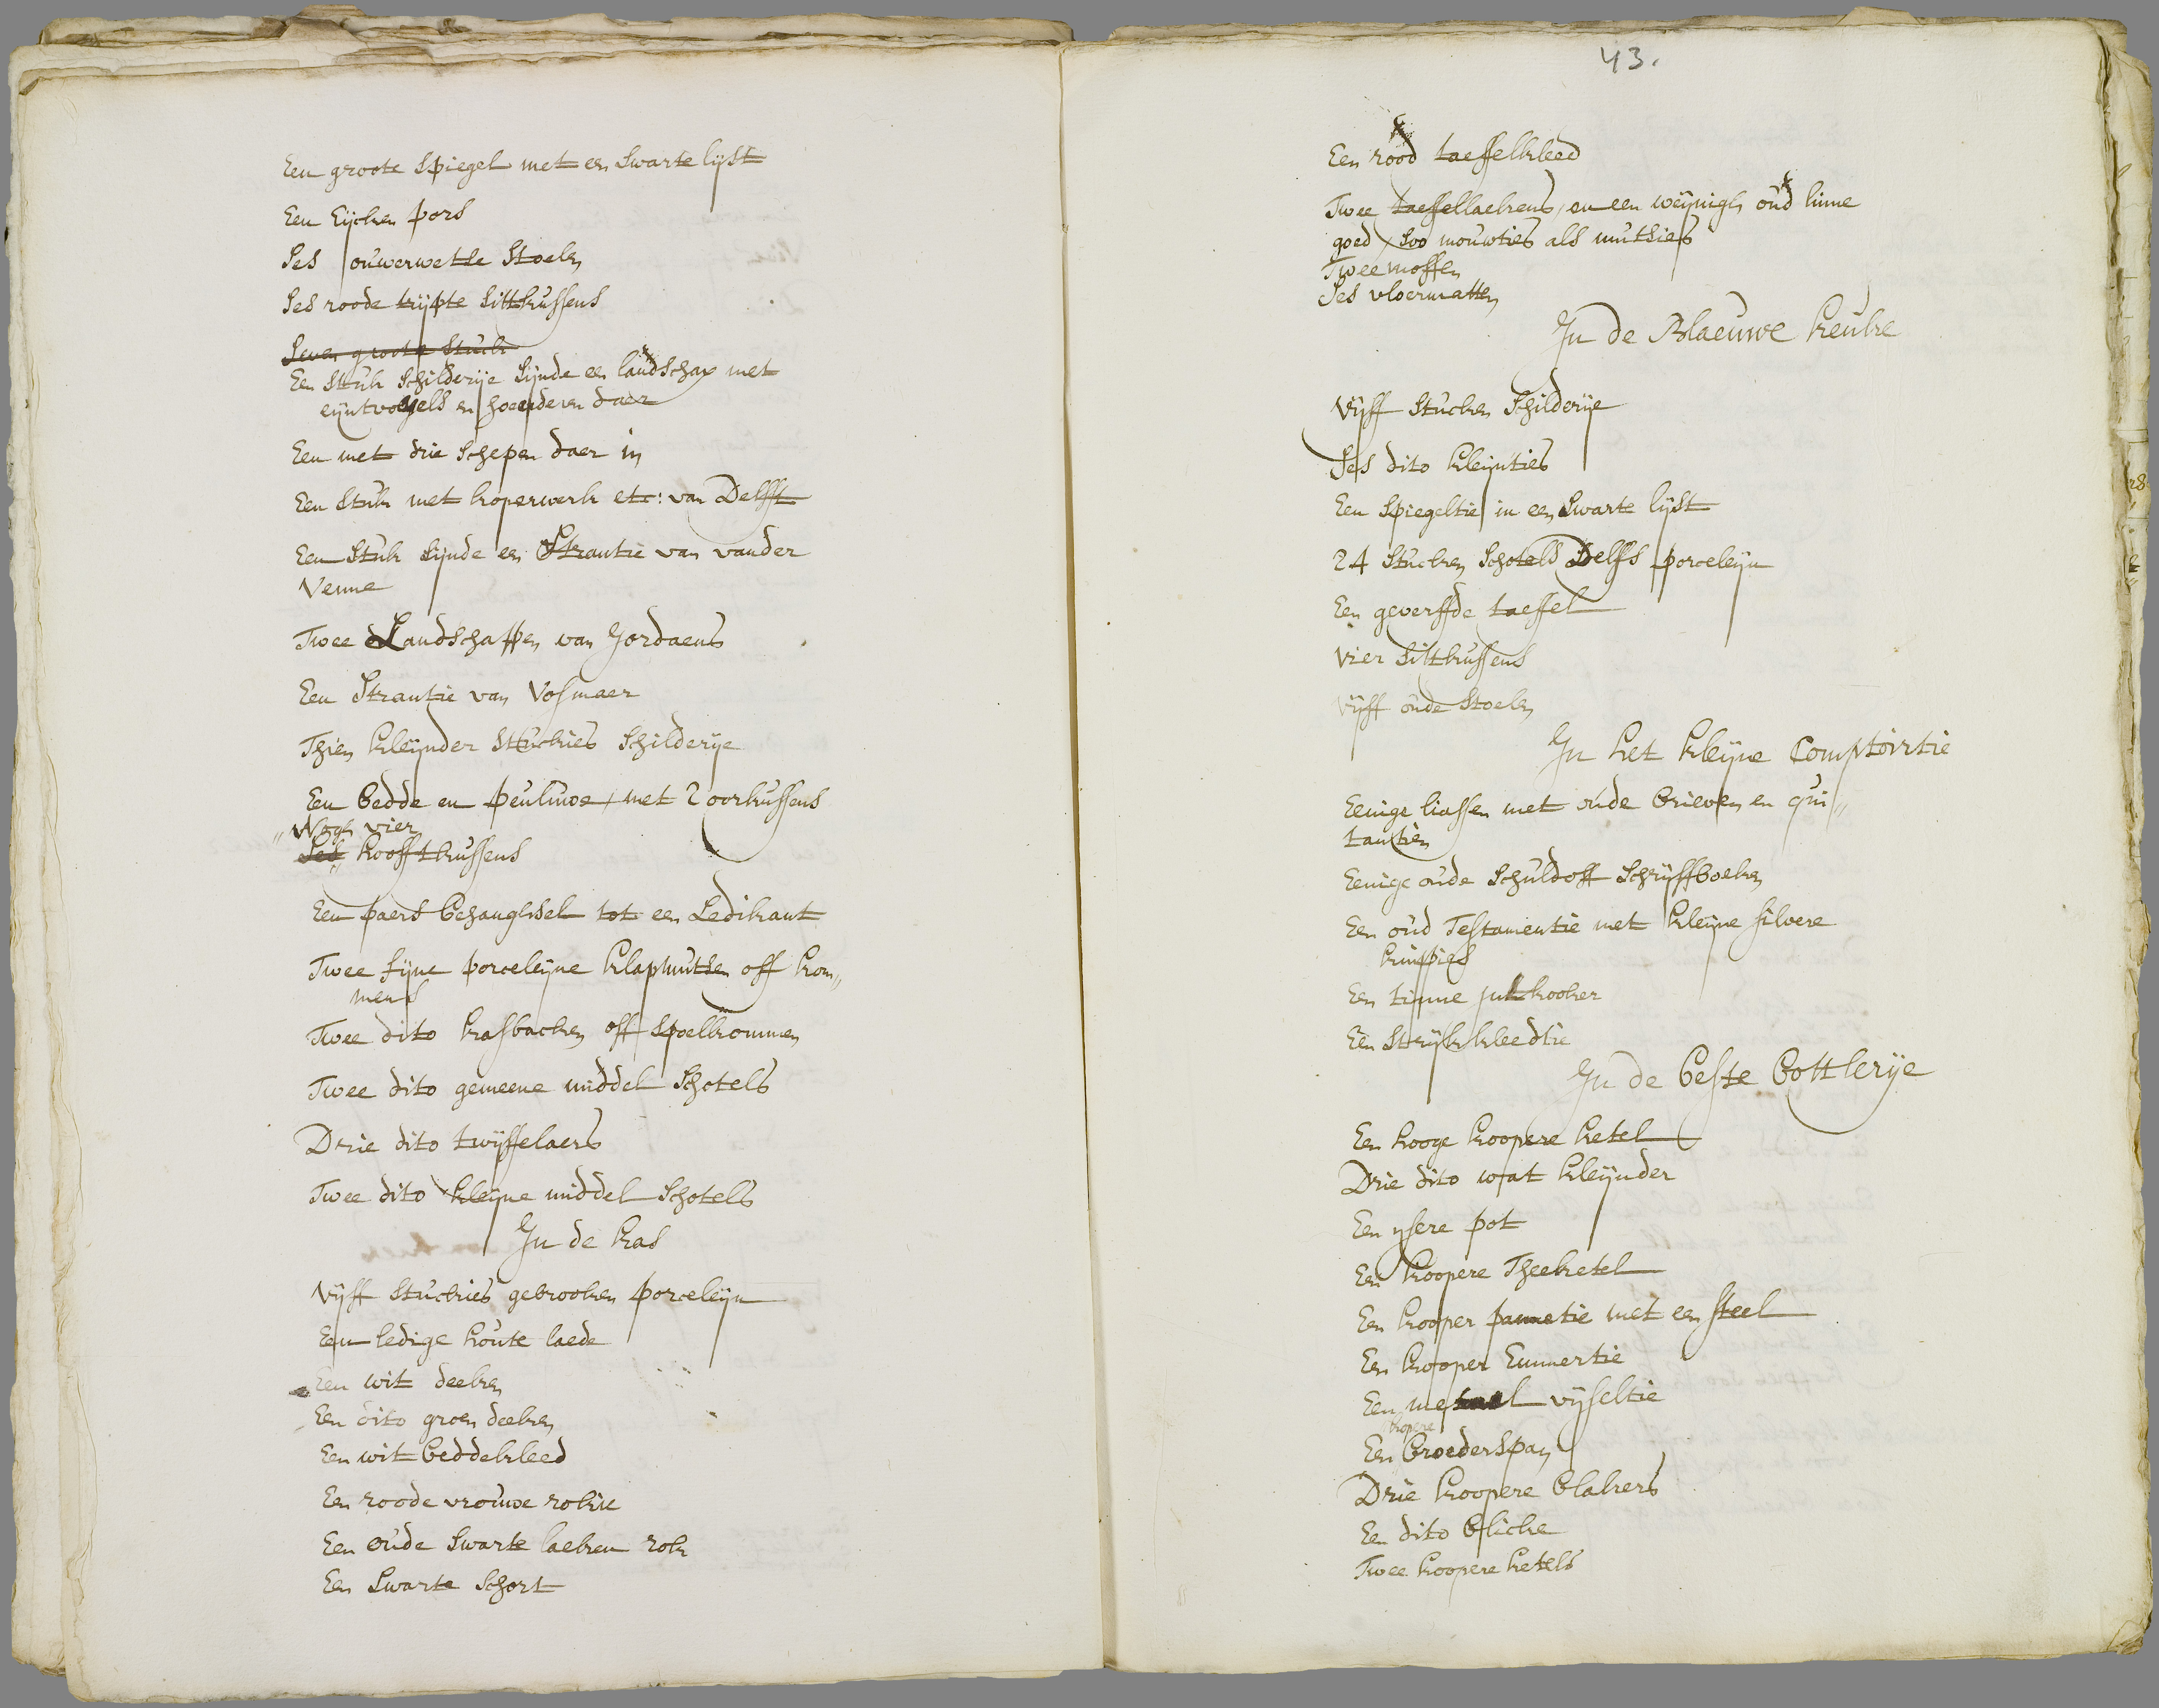 Een groote Spiegel met een Swarte lijst
Een Eijcken pors
Ses ouwerwetse Stoelen
Ses roode trijpte Sittkussens
Seven groote Stuck
Een Stuk Schilderije Sijnde een landschap met
eijntvogels en hoenderen daer
Een met drie Schepen daer in
Een Stuk met koperwerk etc: van Delfft
Een Stuk Sijnde een Strantie van vander
Venne
Twee Landschappen van Jordaens
Een Strantie van Vosmaer
Thien kleijnder Stuckies Schilderije
Een bedde en peuluwe, met 2 oorkussens
Nogh vier
Ses hooftkussens
Een paers behanghsel tot een Ledikant
Twee fijne porceleijne klapmutsen off kom„
mens
Twee dito kasbacken off Spoelkommen
Twee dito gemeene middel Schotels
Drie dito twijffelaers
Twee dito kleijne middel Schotels
In de kas
Vijff Stuckies gebrooken porceleijn
Een ledige houte laede
Een wit deeken
Een dito groen deeken
Een wit beddekleed
Een roode vrouwe rokie
Een oude Swarte laeken rok
Een Swarte Schort
43.
Een rood taeffelkleed
Twee taeffellaekens, en een weijnigh oud linne
goed, soo mouwties als mutsies
Twee moffen
Ses vloermatten
In de Blaeuwe keuke
Vijff Stucken Schilderije
Ses dito kleijnties
Een Spiegeltie in een Swarte lijst
24 Stucken Schotels Delffs porceleijn
Een geverffde taeffel
Vier Sittkussens
Vijff oude Stoelen
In het kleijne Comptoirtie
Eenige liassen met oude brieven en qui„
tantien
Eenige oude Schuld off Schrijffboeken
Een oud Testamentie met kleijne silvere
knipies
Een tinne inkkooker
Een Strijk kleedtie
In de beste bottlerije
Een hooge koopere ketel
Drie dito wat kleijnder
Een ijsere pot
Een koopere Theeketel
Een kooper pannetie met een steel
Een kooper Emmertie
Een metael vijseltie
kopere
Een broederspan
Drie koopere blakers
Een dito blicke
Twee koopere ketels